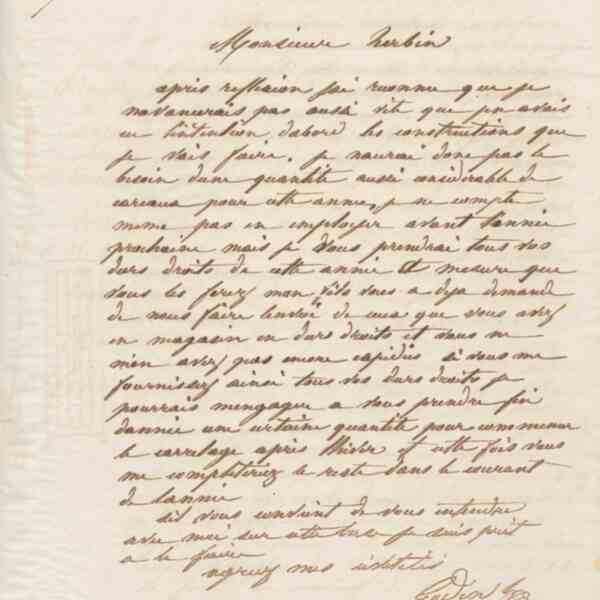 Monsieur herbin
apres reflexion jai reconnu que je
navancerais pas aussi vite que jen avais
eu lintention dabord les constructions que
je vais faire. je naurai donc pas le
besoin dune quantité aussi considerable de
careaux pour cette annee, je ne compte
meme pas en employer avant lannée
prochaine mais je vous prendrai tous vos
durs droits de cette année et mesure que
vous les ferez mon fils vous a deja demandé
de nous faire lenvoi de ceux que vous avez
en magasin en durs droits et vous ne
men avez pas encore expédiés si vous me
fournissez ainsi tous vos durs droits je
pourrais mengager a vous prendre fin
dannée une certaine quantité pour commencer
le carrelage apres lhiver et cette fois vous
me completeriez le reste dans le courant
de lannée
sil vous convient de vous entendre
avec moi sur cette base je suis prêt
a le faire
agreez mes civilités
Godin